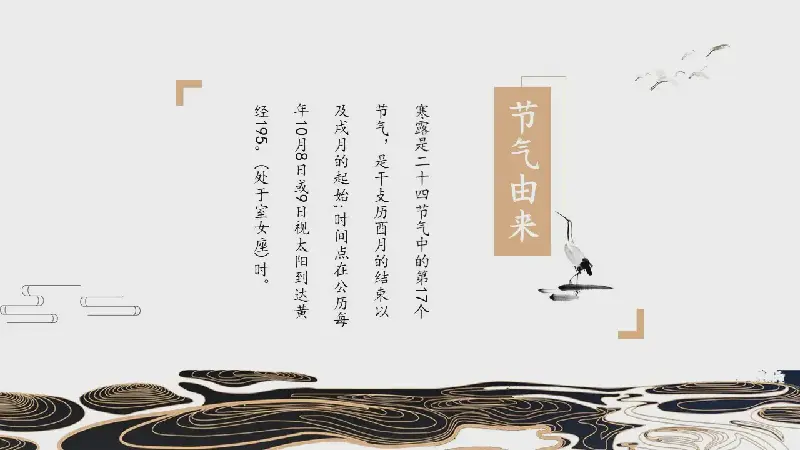 节气由来
寒露是二十四节气中的第17个
节气，是干支历酉月的结束以
及戌月的起始；时间点在公历每
年10月8日或9日视太阳到达黄
经195。（处于室女座）时。